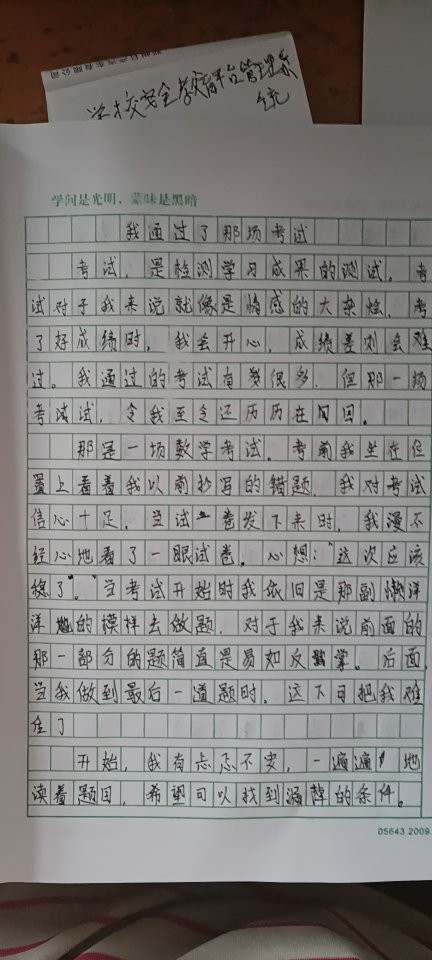 学校安全教育平台管理系
统
学问是光明，蒙昧是黑暗
我通过了那场考试
考试，是检测学习成果的测试。考
试对于我来说就像是情感的大杂烩，考
了好成绩时，我会开心，成绩差则会难
过。我通过的考试有很多，但那一场
考试，令我至今还历历在目。
那是一场数学考试。考前我坐在位
置上看着我以前抄写的错题，我对考试
信心十足，当试卷发下来时，我漫不
经心地看了一眼试卷，心想："这次应该
稳了"。当考试开始时我依旧是那副懒洋
洋的模样去做题，对于我来说前面的
那一部分的题简直是易如反掌。后面，
当我做到最后一道题时，这下可把我难
住了
开始，我有忐忑不安，一遍遍地
读着题目，希望可以找到漏掉的条件。
05643.2009.